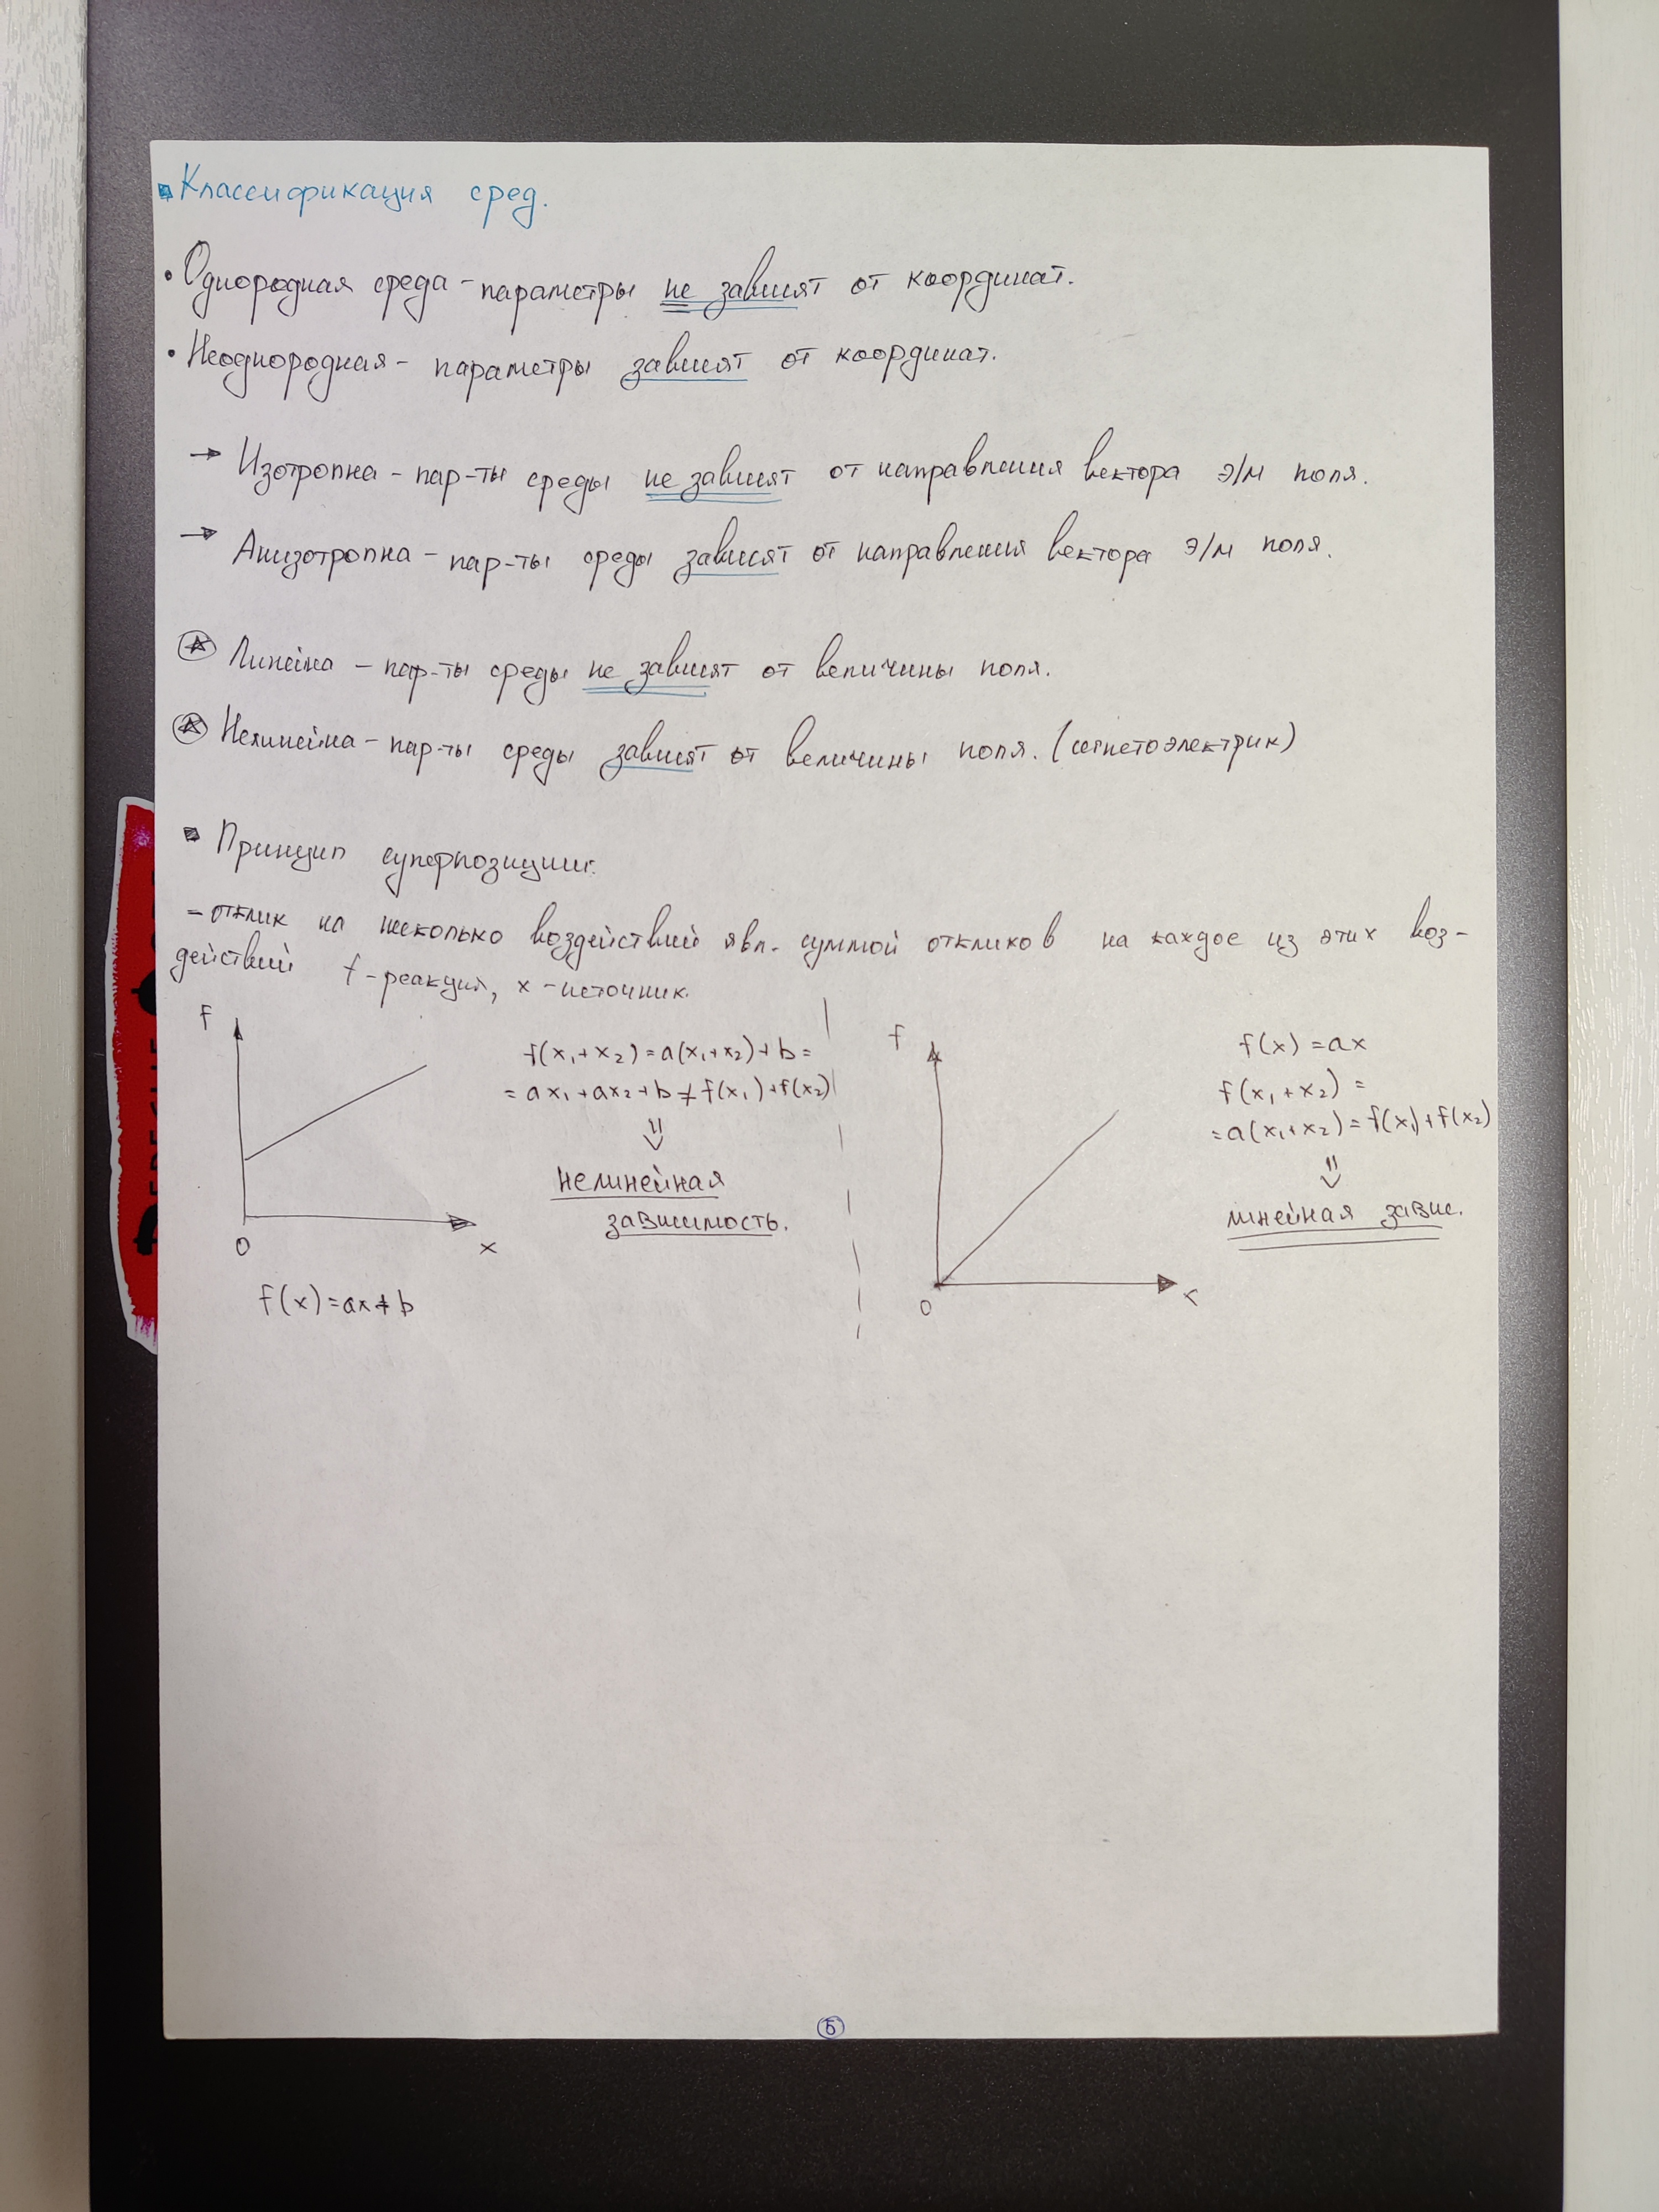 Классификация сред.
• Однородная среда - параметры не зависят от координат.
• Неоднородная - параметры зависят от координат.
→ Изотропна - пар-ты среды не зависят от направления вектора э/м поля.
→ Анизотропна - пар-ты среды зависят от направления вектора э/м поля.
Линейна - пар-ты среды не зависят от величины поля.
Нелинейна - пар-ты среды зависят от величины поля. (сегнетоэлектрик)
Принцип суперпозиции:
- отклик на несколько воздействий явл. суммой откликов на каждое из этих воз-
действий f - реакция, x - источник.
f
f(x₁+x₂)=a(x₁+x₂)+b=
=ax₁+ax₂+b≠f(x₁)+f(x₂)
⇓
нелинейная
зависимость.
0
x
f(x)=ax+b
f
f(x)=ax
f(x₁+x₂)=
=a(x₁+x₂)=f(x₁)+f(x₂)
⇓
линейная завис.
0
x
5